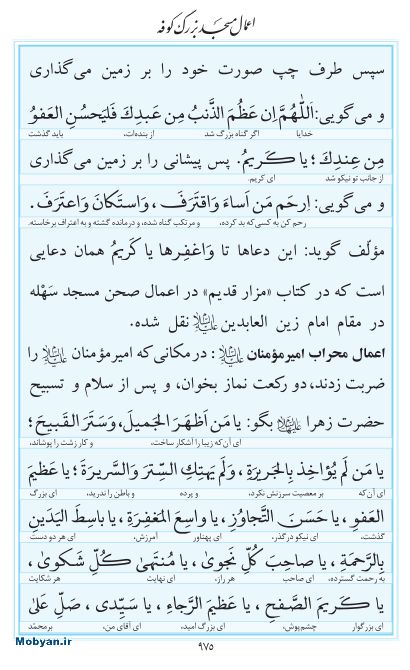 اعمال مسجد بزرگ کوفه
سپس طرف چپ صورت خود را بر زمین می‌گذاری
و می‌گویی: اَللّٰهُمَّ اِن عَظُمَ الذَّنبُ مِن عَبدِكَ فَليَحسُنِ العَفوُ
خدایا اگر گناه بزرگ شد از بنده‌ات، باید گذشت
مِن عِندِكَ ؛ يا كَريمُ. پس پیشانی را بر زمین می‌گذاری
از جانب تو نیکو شد ای کریم.
و می‌گویی: اِرحَم مَن اَساءَ وَاقتَرَفَ ، وَاستَكانَ وَاعتَرَفَ.
رحم کن به کسی‌که بد کرده، و مرتکب گناه شده، و درمانده گشته و به اعتراف برخاسته.
مؤلّف گوید: این دعاها تا وَاغفِرها يا كَريمُ همان دعایی
است که در کتاب «مزار قدیم» در اعمال صحن مسجد سَهْله
در مقام امام زین العابدین علیه‌السلام نقل شده.
اعمال محراب امیرمؤمنان علیه‌السلام : در مکانی که امیرمؤمنان علیه‌السلام را
ضربت زدند، دو رکعت نماز بخوان، و پس از سلام و تسبیح
حضرت زهرا علیهاالسلام بگو: يا مَن اَظهَرَ الجَميلَ، وَسَتَرَ القَبيحَ ؛
ای آن‌که زیبا را آشکار ساخت، و کار زشت را پوشاند،
يا مَن لَم يُؤاخِذ بِالجَريرَةِ ، وَلَم يَهتِكِ السِّترَ وَالسَّريرَةَ ؛ يا عَظيمَ
ای آن‌که بر معصیت سرزنش نکرد، و پرده و باطن را ندرید، ای بزرگ
العَفوِ ، يا حَسَنَ التَّجاوُزِ ، يا واسِعَ المَغفِرَةِ ، يا باسِطَ اليَدَينِ
گذشت، ای نیکو درگذر، ای پهناور آمرزش، ای هر دو دست
بِالرَّحمَةِ ، يا صاحِبَ كُلِّ نَجوىٰ ، يا مُنتَهىٰ كُلِّ شَكوىٰ ،
به رحمت گسترده، ای صاحب هر راز، ای نهایت هر شکایت
يا كَريمَ الصَّفحِ ، يا عَظيمَ الرَّجاءِ ، يا سَيِّدى ، صَلِّ عَلىٰ
ای بزرگوار چشم‌پوش، ای بزرگ امید، ای آقای من، بر محمّد
۹۷۵
Mobyan.ir